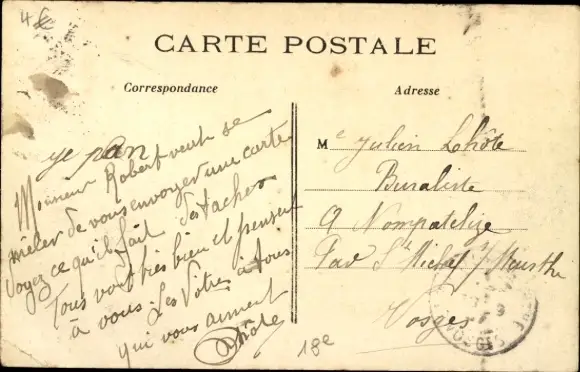 4€
CARTE POSTALE
Correspondance
ye pan
Monsieur Robert veut se
mêler de vous envoyer une carte
Voyez ce qu'il fait des taches
Tous vont très bien et pensent
à vous. Les Vôtres à tous
qui vous aiment
Lhôte
18e
Adresse
Me Julien Lhôte
Buraliste
à Nompatelize
Par St Michel s/ Meurthe
Vosges